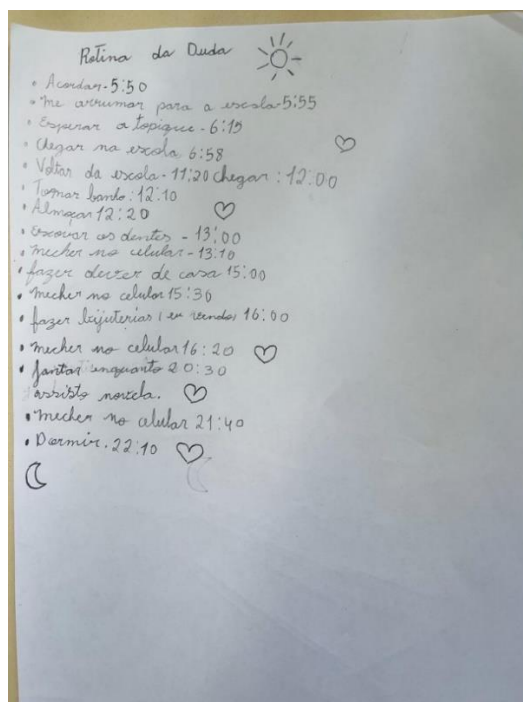 Rotina da Duda
• Acordar-5:50
• me arrumar para a escola-5:55
• Esperar a topique-6:15
• Chegar na escola 6:58
• Voltar da escola-11:20 chegar: 12:00
• Tomar banho: 12:10
• Almoçar 12:20
• Escovar os dentes - 13:00
• mecher no celular-13:10
• fazer dever de casa 15:00
• mecher no celular 15:30
• fazer bijuterias (eu vendo) 16:00
• mecher no celular 16:20
• Jantar enquanto 20:30
assisto novela.
• mecher no celular 21:40
• Dormir. 22:10